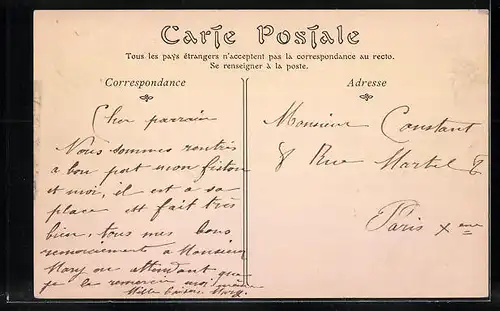 Carte Postale
Tous les pays étrangers n'acceptent pas la correspondance au recto.
Se renseigner à la poste.
Correspondance
Adresse
Cher parrain
Nous sommes rentrés
a bon port mon fiston
et moi, il est a sa
place et fait très
bien, tous mes bons
remerciements a Monsieur
en attendant que
je le remercie moi même
Mille baisers
Monsieur Constant
8 Rue Martel
Paris Xeme